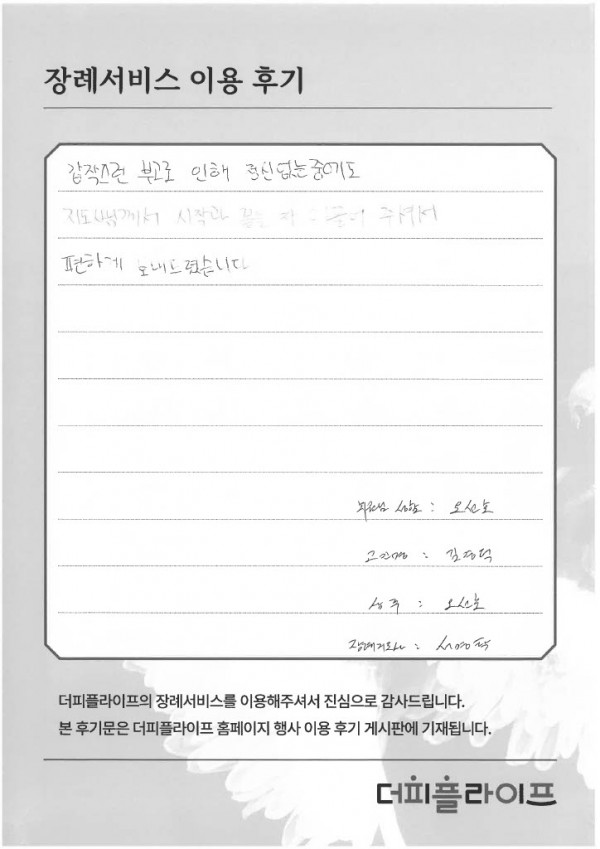 장례서비스 이용 후기
갑작스런 부고로 인해 정신없는중에도
지도사님께서 시작과 끝을 주셔서
편하게 보내드렸습니다
상품 : 오선호
고인명 :
상주 : 오선호
장례지도사 : 서영덕
더피플라이프의 장례서비스를 이용해주셔서 진심으로 감사드립니다.
본 후기문은 더피플라이프 홈페이지 행사 이용 후기 게시판에 기재됩니다.
더피플라이프